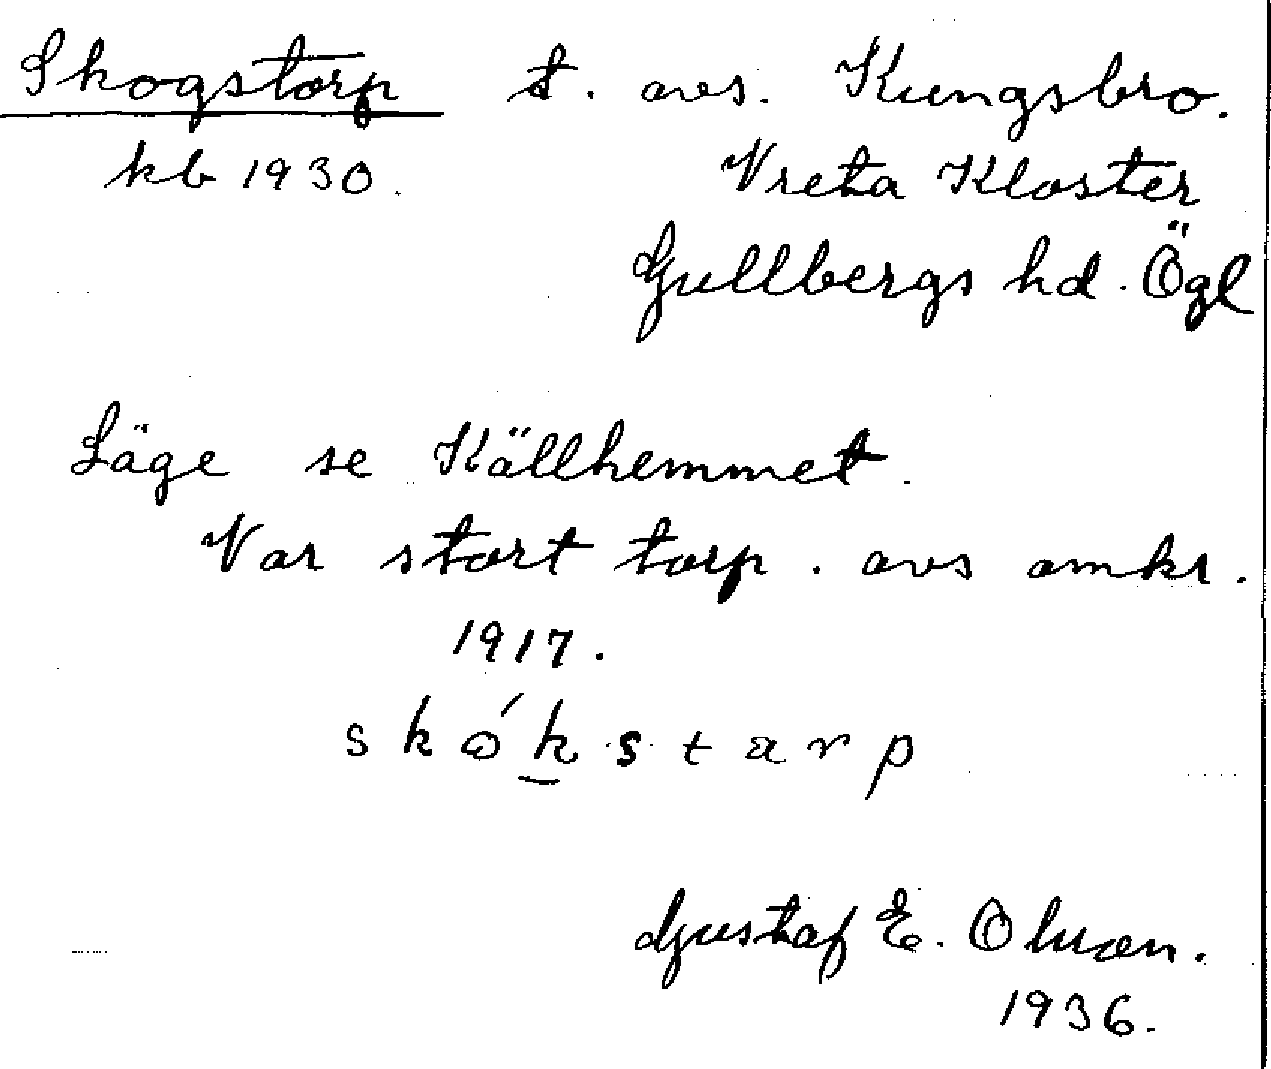 Skogstorp t. avs. Kungsbro.
kb 1930. Vreta Kloster
Gullbergs hd. Ögl
Läge se Källhemmet.
Var stort torp. avs omkr.
1917.
skókstarp
Gustaf E. Olsson.
1936.